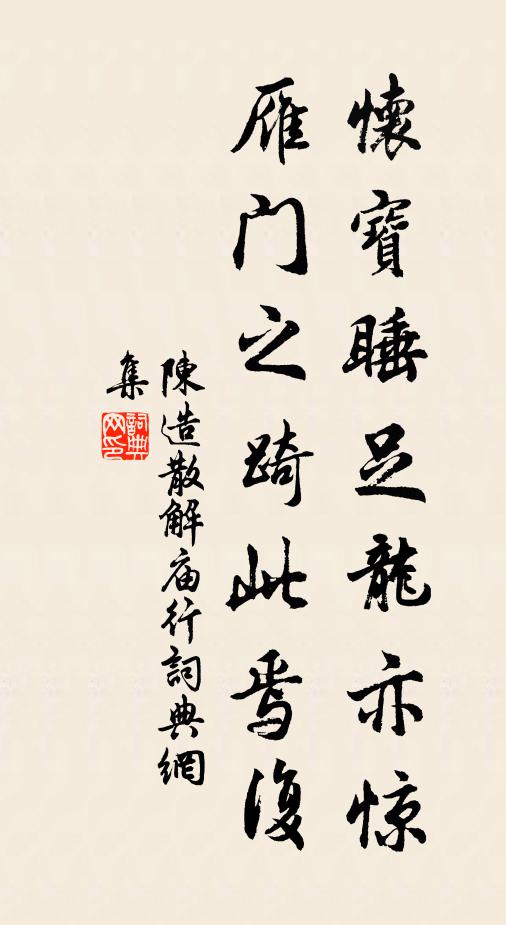 懷寶睡足龍亦惊
雁门之踦此焉復
陳造散解庙行詞典網
集
詞典
网印